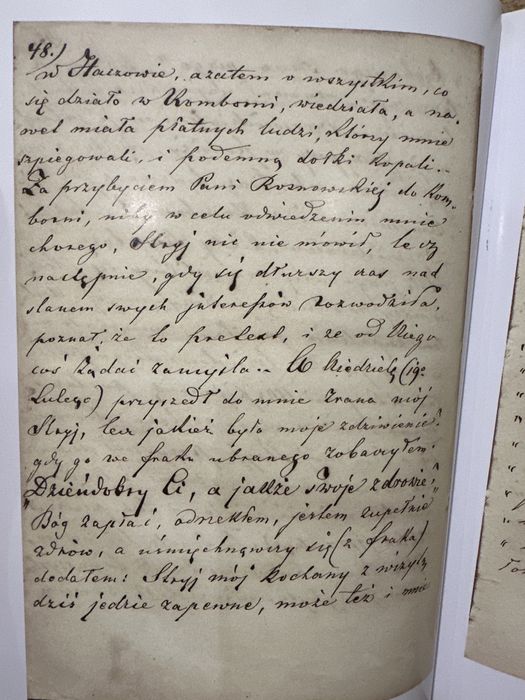 48.)
w Haczowie, a zatem o wszystkim, co
się działo w Komborni, wiedziała, a na-
wet miała płatnych ludzi, którzy mnie
szpiegowali, i podemną dołki kopali. –
Za przybyciem Pani Rosnowskiej do Kom-
borni, niby w celu odwiedzenia mnie
chorego, Stryj nic nie mówił, lecz
następnie, gdy się dłuższy czas nad
stanem swych interessów rozwodziła,
poznał, że to pretext, i że od Niego
coś żądać zamyśla. – W Niedzielę (19o
Lutego) przyszedł do mnie zrana mój
Stryj, lecz jakież było moje zdziwienie?
gdy go we fraku ubranego zobaczyłem.
"Dzieńdobry Ci, a jakże Twoje zdrowie?"
"Bóg zapłać, odrzekłem, jestem zupełnie
zdrów, a uśmiechnąwszy się (z fraka)
dodałem: Stryj mój kochany z wizytą
dziś jedzie zapewne, może też i mnie